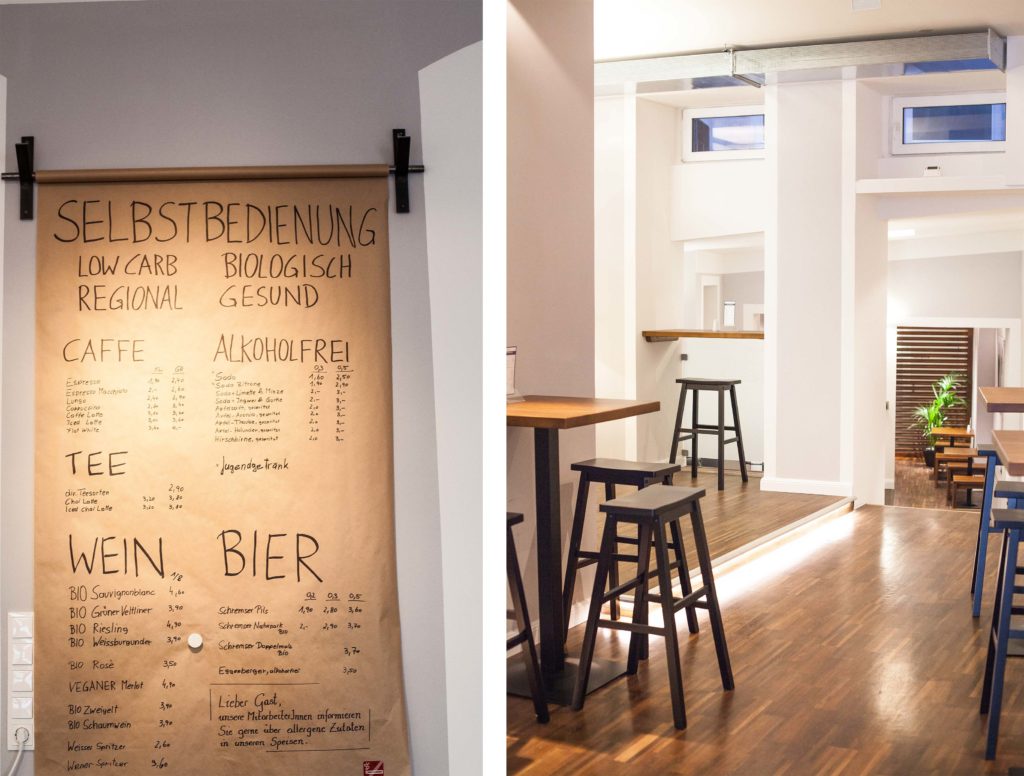 SELBSTBEDIENUNG
LOW CARB BIOLOGISCH
REGIONAL GESUND
CAFFE
KL. GR.
Espresso 1,90 2,70
Espresso Macchiato 2,-
Lungo
Cappuccino
Caffe Latte
Iced Latte
Flat White
TEE
div. Teesorten 2,90
Chai Latte 3,20 3,80
Iced Chai Latte 3,20 3,80
ALKOHOLFREI
0,3 0,5
Soda 1,60 2,50
Soda Zitrone 1,90 2,90
Soda + Limette & Minze 2,- 3,-
Soda + Ingwer & Gurke 2,- 3,-
Apfelsaft, gespritzt
Apfel-Traube, gespritzt
Apfel-Holunder, gespritzt
Hirschbirne, gespritzt
Jugendgetränk
WEIN 1/8
BIO Sauvignonblanc 4,60
BIO Grüner Veltliner 3,90
BIO Riesling 4,90
BIO Weissburgunder 3,90
BIO Rosè 3,50
VEGANER Merlot 4,90
BIO Zweigelt 3,90
BIO Schaumwein 3,90
Weisser Spritzer 2,60
Wiener Spritzer 3,60
BIER
0,2 0,3 0,5
Schremser Pils 1,90 2,80 3,60
Schremser Naturpark BIO 2,- 2,90 3,70
Schremser Doppelmalz BIO 3,70
Eggenberger, alkoholfrei 3,50
Lieber Gast,
unsere MitarbeiterInnen informieren
Sie gerne über allergene Zutaten
in unseren Speisen.